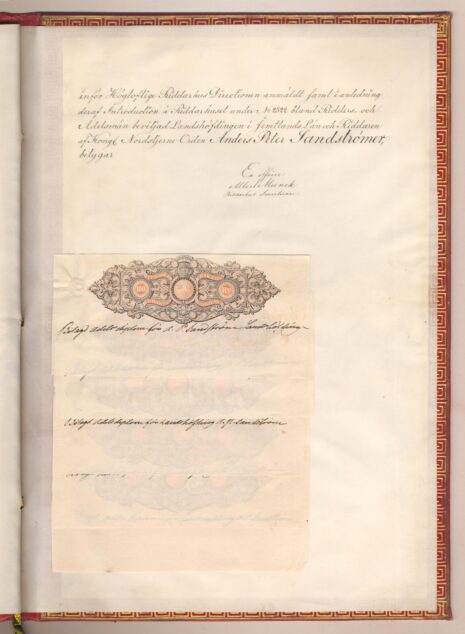 inför Högloflige Riddarhus Directionen anmäldt samt i anledning
deraf Introduction å Riddarhuset under № 2322 bland Ridders. och
Adelsmän beviljad Landshöfdingen i Jemtlands Län och Riddaren
af Kongl Nordstjerne Orden Anders Peter Sandströmer,
betygar
Ex officio
Munck
Belagd Adels diplom för A. P. Sandströmer, Landshöfdinge
Belagd Adels diplom för Landshöfding A. P. Sandström